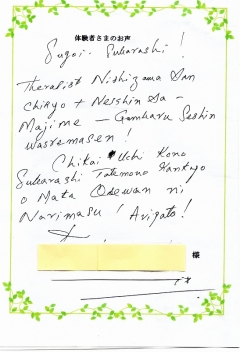 体験者さまのお声
Sugoi. Subarashi!
Therapist Nishizawa San
Chiryo + Neishin Sa -
Majime - Gambaru Seshin
Wasuremasen!
Chikai Uchi Kono
Subarashi Tatemono Kankyo
o Mata Osewan ni
Narimasu! Arigato!
様